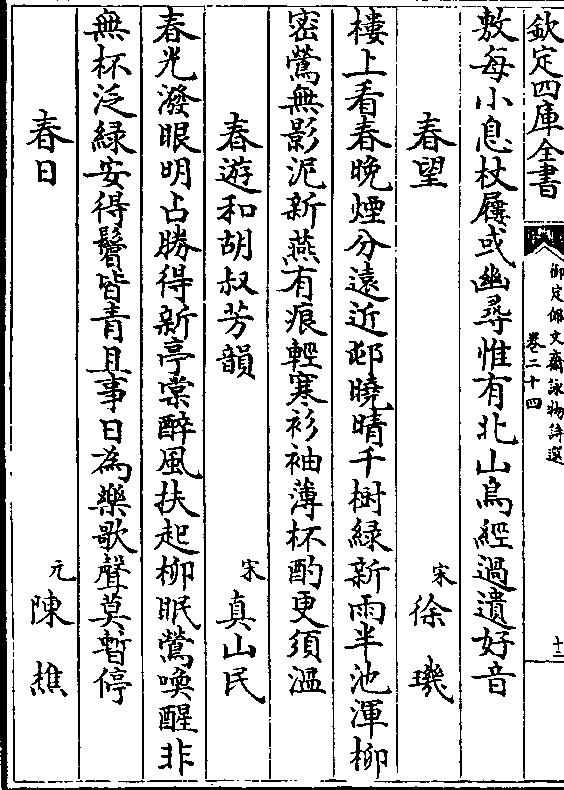 欽定四庫全書
御定佩文齋詠物詩選
卷二十四
十二
敷每小息杖屨或幽尋惟有北山鳥經過遺好音
春望
宋
徐璣
樓上看春晚煙分遠近邨曉晴千樹綠新雨半池渾柳
密鶯無影泥新燕有痕輕寒衫袖薄杯酌更須溫
春遊和胡叔芳韻
宋
真山民
春光潑眼明占勝得新亭棠醉風扶起柳眠鶯喚醒非
無杯泛綠安得鬢皆青且事日為樂歌聲莫暫停
春日
元
陳樵